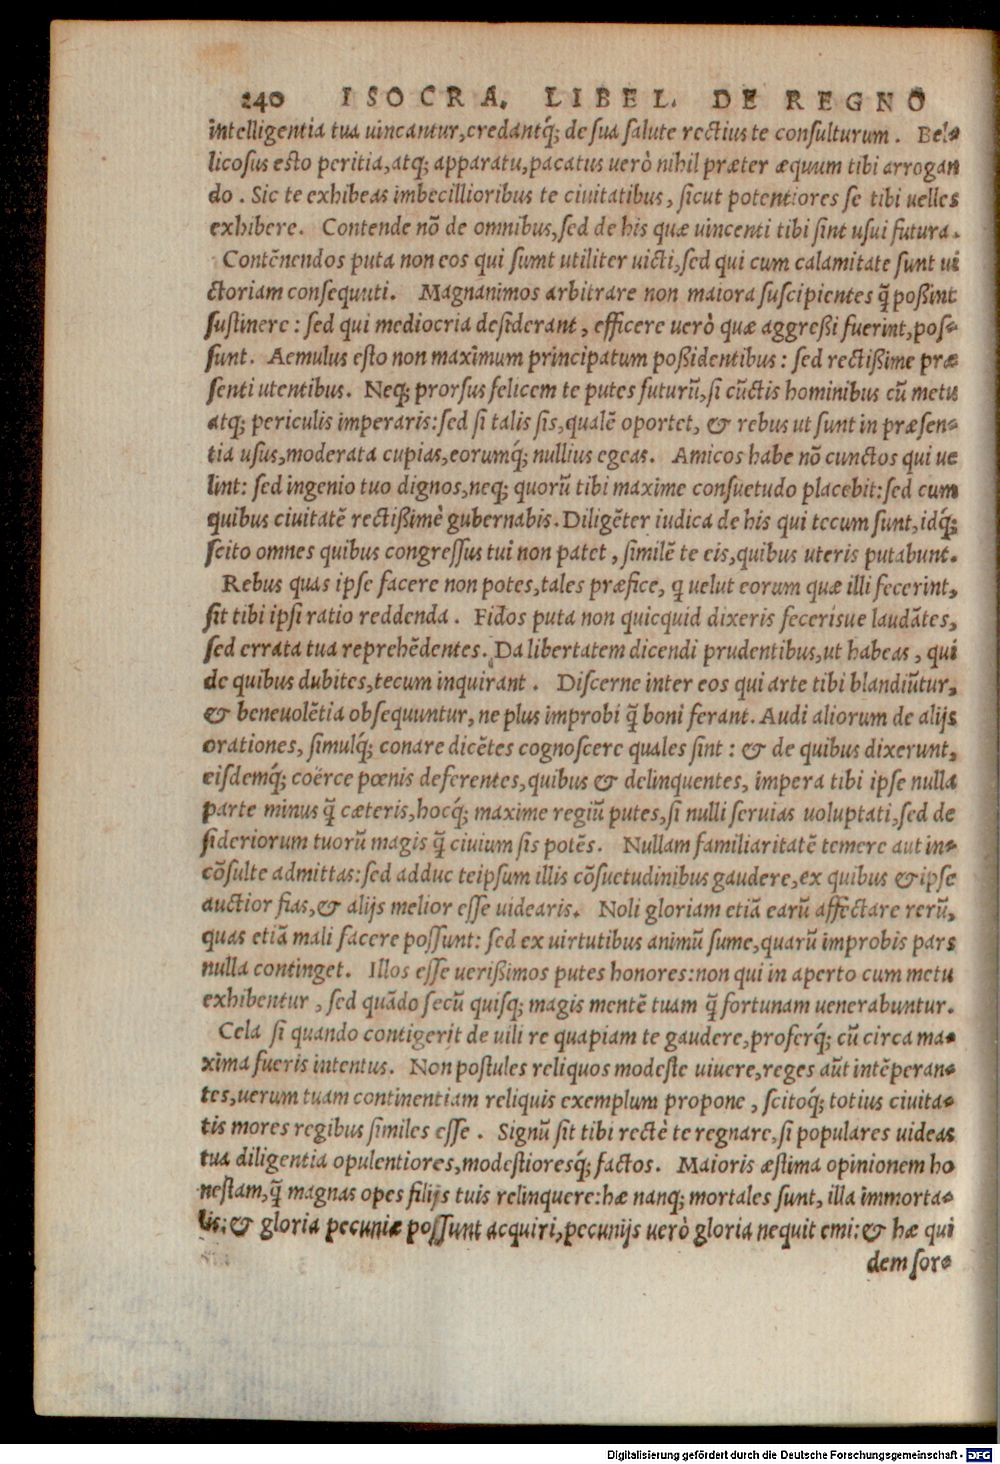 240 ISOCRA. LIBEL. DE REGNO
intelligentia tua uincantur, credantq́; de sua salute rectius te consulturum. Bel-
licosus esto peritia, atq; apparatu, pacatus uerò nihil præter æquum tibi arrogan
do. Sic te exhibeas imbecillioribus te ciuitatibus, sicut potentiores se tibi uelles
exhibere. Contende nõ de omnibus, sed de his quæ uincenti tibi sint usui futura.
Contẽnendos puta non eos qui sumt utiliter uicti, sed qui cum calamitate sunt ui
ctoriam consequuti. Magnanimos arbitrare non maiora suscipientes q̃ poßint
sustinere: sed qui mediocria desiderant, efficere uerò quæ aggreßi fuerint, pos-
sunt. Aemulus esto non maximum principatum poßidentibus: sed rectißime præ
senti utentibus. Neq; prorsus felicem te putes futurũ, si cũctis hominibus cũ metu
atq; periculis imperaris: sed si talis sis, qualẽ oportet, & rebus ut sunt in præsen-
tia usus, moderata cupias, eorumq́; nullius egeas. Amicos habe nõ cunctos qui ue
lint: sed ingenio tuo dignos, neq; quorũ tibi maxime consuetudo placebit: sed cum
quibus ciuitatẽ rectißimè gubernabis. Diligẽter iudica de his qui tecum sunt, idq́;
scito omnes quibus congressus tui non patet, similẽ te eis, quibus uteris putabunt.
Rebus quas ipse facere non potes, tales præfice, q̃ uelut eorum quæ illi fecerint,
sit tibi ipsi ratio reddenda. Fidos puta non quicquid dixeris fecerisue laudãtes,
sed errata tua reprehẽdentes. Da libertatem dicendi prudentibus, ut habeas, qui
de quibus dubites, tecum inquirant. Discerne inter eos qui arte tibi blandiũtur,
& beneuolẽtia obsequuntur, ne plus improbi q̃ boni ferant. Audi aliorum de alijs
orationes, simulq́; conare dicẽtes cognoscere quales sint: & de quibus dixerunt,
eisdemq́; coërce pœnis deferentes, quibus & delinquentes, impera tibi ipse nulla
parte minus q̃ cæteris, hocq́; maxime regiũ putes, si nulli seruias uoluptati, sed de
sideriorum tuorũ magis q̃ ciuium sis potẽs. Nullam familiaritatẽ temere aut in-
cõsulte admittas: sed adduc teipsum illis cõsuetudinibus gaudere, ex quibus & ipse
auctior fias, & alijs melior esse uidearis. Noli gloriam etiã earũ affectare rerũ,
quas etiã mali facere possunt: sed ex uirtutibus animũ sume, quarũ improbis pars
nulla continget. Illos esse uerißimos putes honores: non qui in aperto cum metu
exhibentur, sed quãdo secũ quisq; magis mentẽ tuam q̃ fortunam uenerabuntur.
Cela si quando contigerit de uili re quapiam te gaudere, proferq́; cũ circa ma-
xima fueris intentus. Non postules reliquos modeste uiuere, reges aũt intẽperan-
tes, uerum tuam continentiam reliquis exemplum propone, scitoq́; totius ciuita-
tis mores regibus similes esse. Signũ sit tibi rectè te regnare, si populares uideas
tua diligentia opulentiores, modestioresq́; factos. Maioris æstima opinionem ho
nestam, q̃ magnas opes filijs tuis relinquere: hæ nanq; mortales sunt, illa immorta-
lis: & gloria pecuniæ possunt acquiri, pecunijs uerò gloria nequit emi: & hæ qui
dem sor-
Digitalisierung gefördert durch die Deutsche Forschungsgemeinschaft - DFG